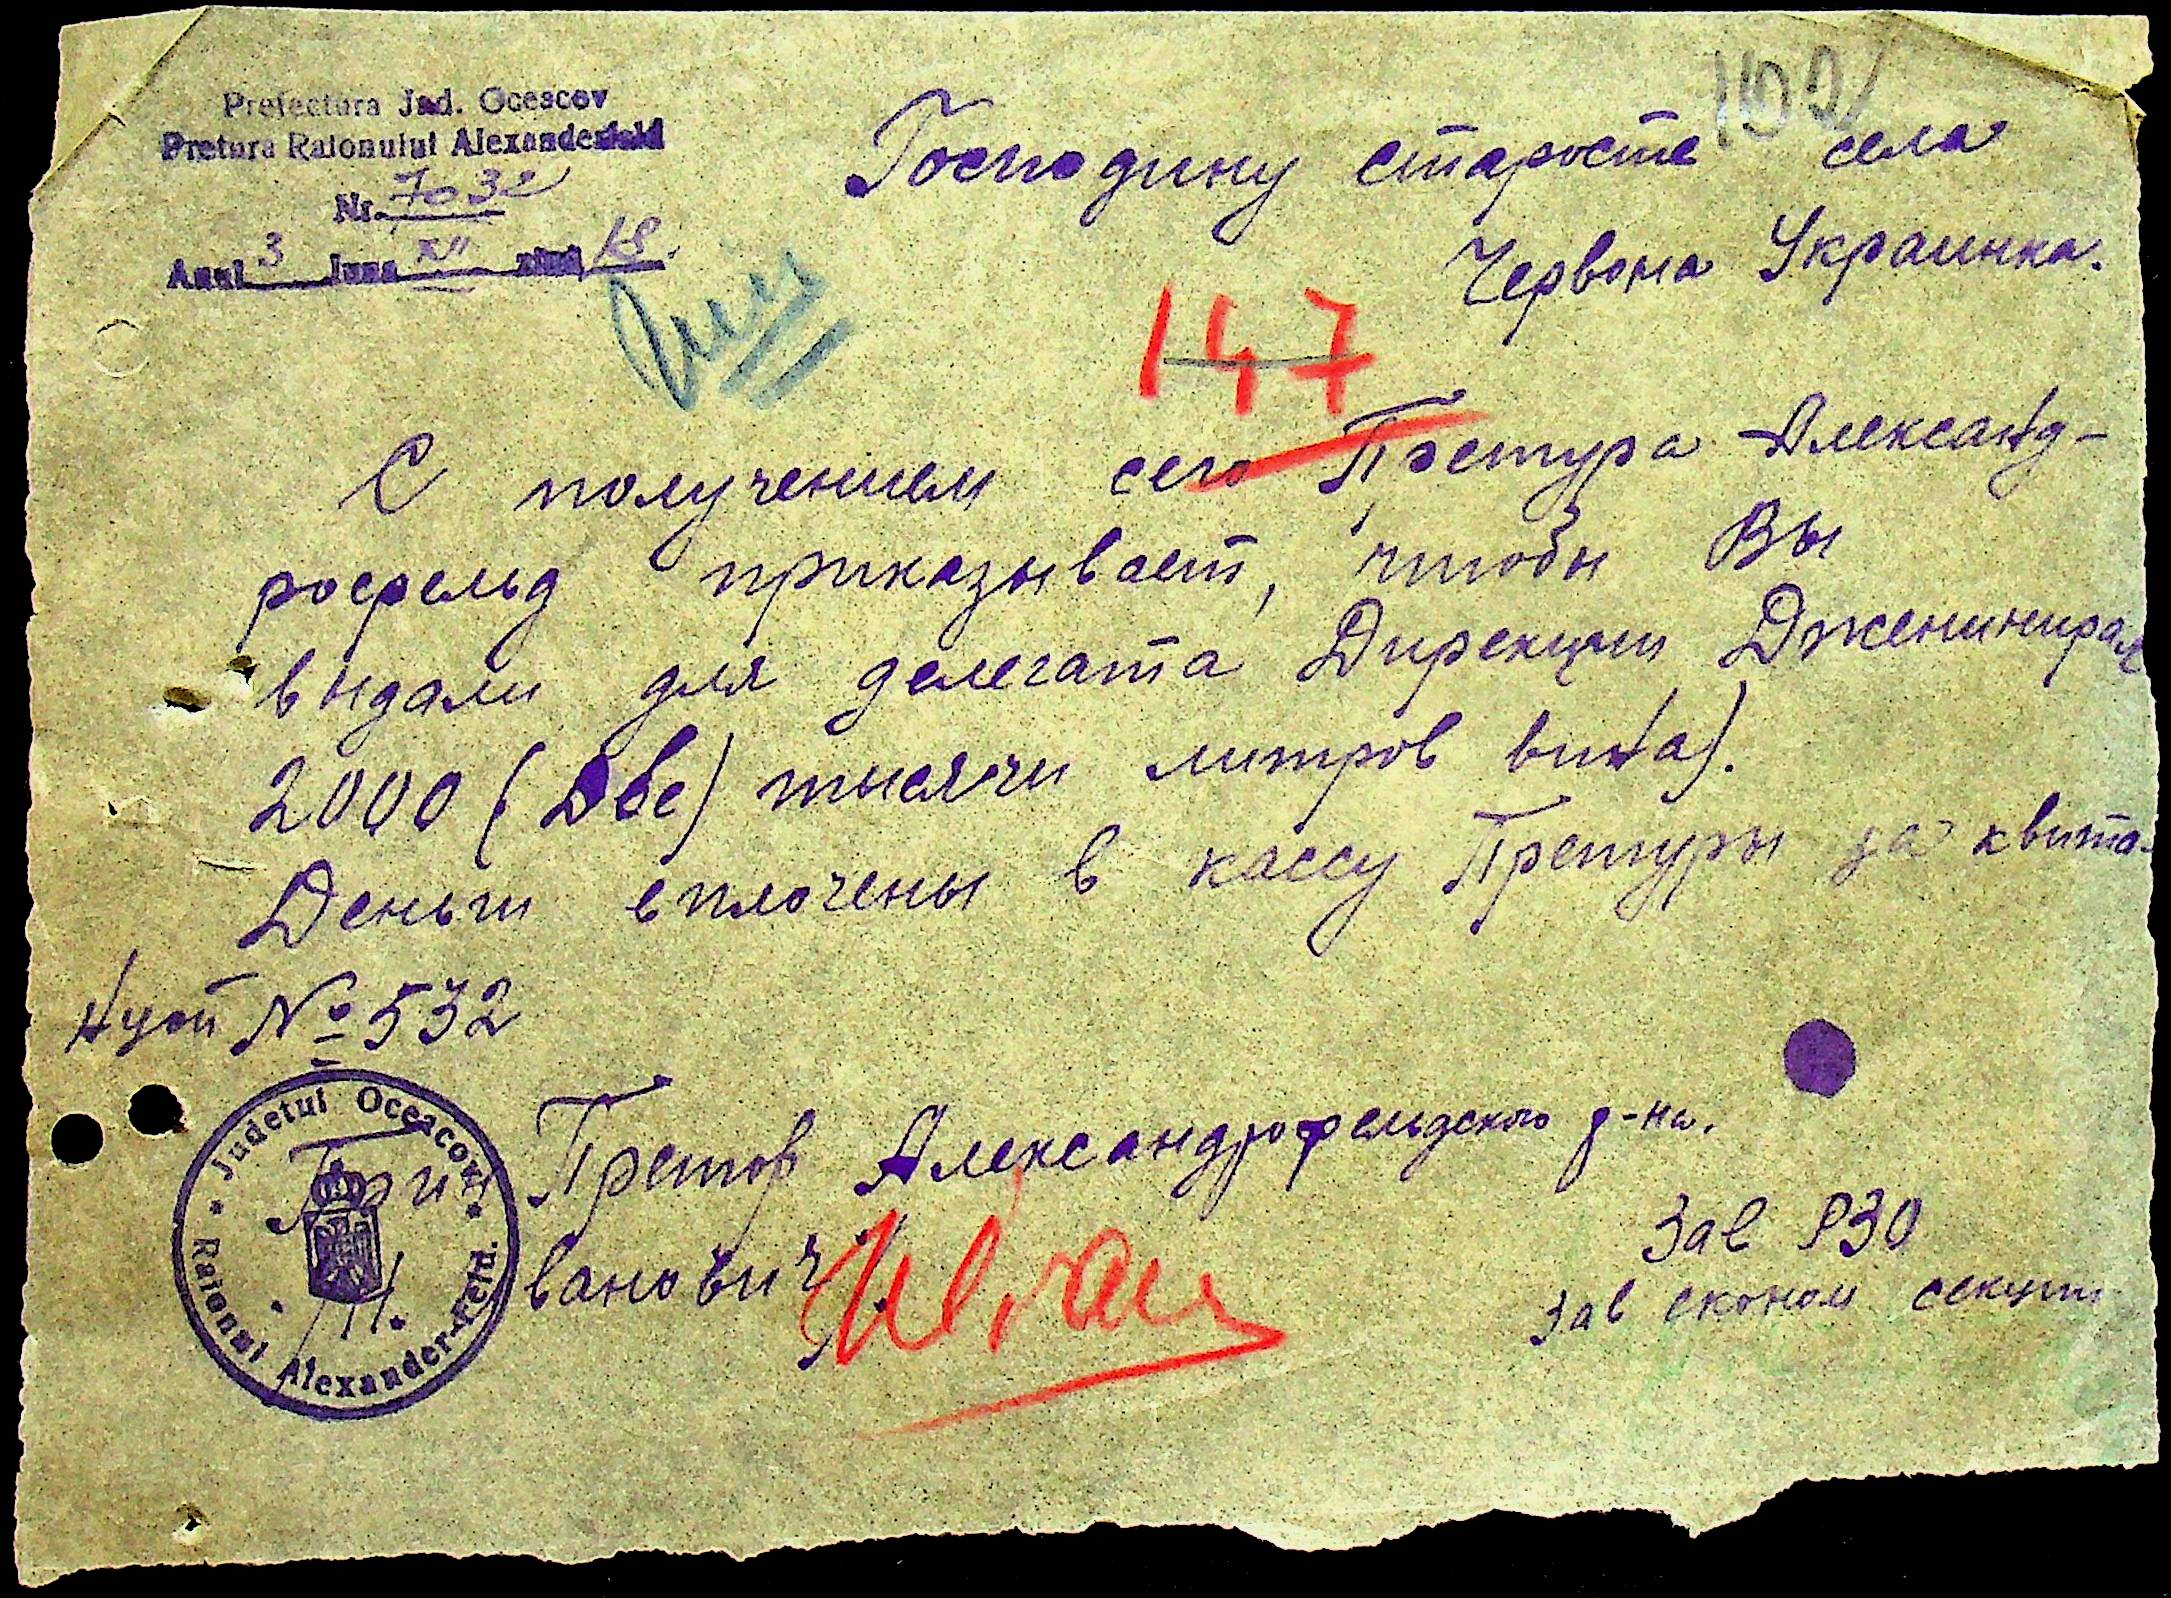 102
Prefectura Jud. Oceacov
Pretura Raionului Alexanderfeld
Nr. 7032
Anul 3 luna XII ziua 18
Господину старосте села
Червона Украинка.
147
С получением сего Претура Александ-
росфельд приказывает, чтобы Вы
выдали для делегата Дирекции
2000 (Две) тысячи литров вина).
Деньги вплочены в кассу Претуры за квита-
нцой № 532
Judetul Oceacov
Raionul Alexander-Feld.
Претор Александрофельдского р-на.
Зав РЗО
И. ванович
Зав економ секции